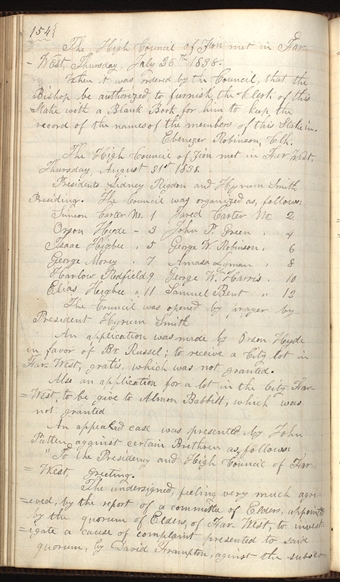 154
The High Council of Zion met in Far-
West, Thursday, July 26th 1838.
When it was ordered by the Council, that the
Bishop be authorized to furnish the clerk of this
Stake with a Blank Book for him to keep the
record of the names of the members of this Stake in.
Ebenezer Robinson, Clk.
The High Council of Zion met in Far West,
Thursday, August 31st 1838.
Presidents Sidney Rigdon and Hyrum Smith
Presiding. The Council was organized as, follows:
Simeon Carter No. 1 Jared Carter No. 2
Orson Hyde - 3 John P. Green . 4
Isaac Higbee . 5 George W. Robinson. 6
George Morey . 7 Amasa Lyman 8
Harlow Redfield 9 George W. Harris . 10
Elias Higbee " 11 Samuel Bent " 12
The Council was opened by prayer by
President Hyrum Smith
An application was made by Orson Hyde
in favor of Br. Russel; to receive a City lot in
Far West, gratis, which was not granted.
Also an application for a lot in the City Far
West, to be give to Almon Babbitt, which was
not granted
An appealed case was presented by John
Patten against certain Brethren as, follows:
"To the Presidency and High Council of Far-
= West Greeting.
The undersigned, feeling very much agri-
= eved, by the report of a committe of Elders, appointed
by the quorum of Elders of Far West, to invest
= igate a cause of complaint presented to said
quorum, by David Frampton, against the subscr